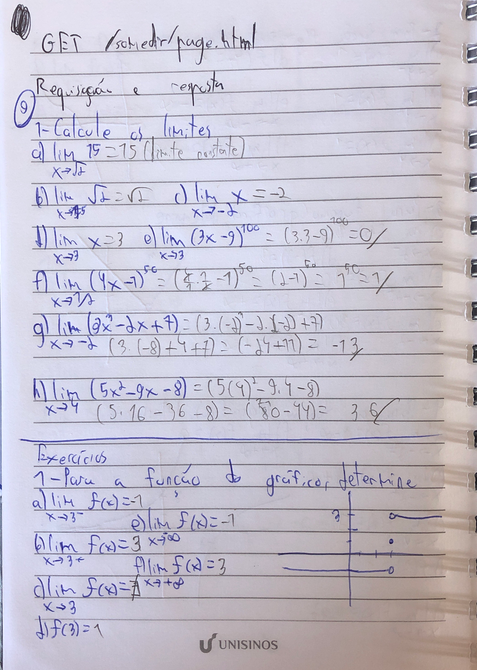 GET /somedir/page.html
Requisição e resposta
9
1-Calcule os limites
a) lim 15 = 15 (limite constante)
x→√2
b) lim √2 = √2 c) lim x = -2
x→15 x→-2
d) lim x = 3 e) lim (3x-9)^100 = (3.3-9)^100 = 0
x→3 x→3
f) lim (4x-1)^50 = (4.1/2-1)^50 = (2-1)^50 = 1^50 = 1
x→1/2
g) lim (3x³-2x+7) = (3.(-2)³-2.(-2)+7)
x→-2 (3.(-8)+4+7) = (-24+11) = -13
h) lim (5x²-9x-8) = (5(4)²-9.4-8)
x→4 (5.16-36-8) = (80-44) = 36
Exercícios
1-Para a função do gráfico, determine
a) lim f(x)=-1
x→3-
e) lim f(x)=-1
x→-∞
3
b) lim f(x)=3
x→3+
f) lim f(x)=3
x→+∞
c) lim f(x)=∄
x→3
d) f(3)=1
UNISINOS